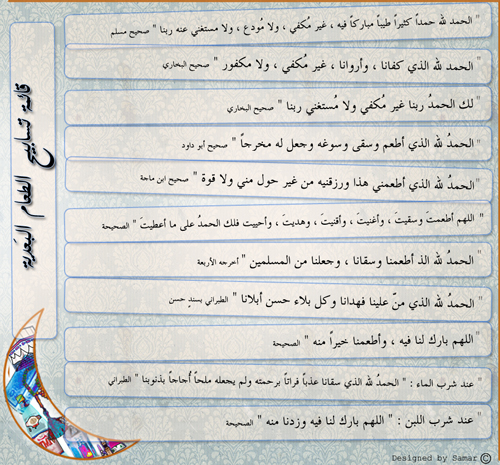 قائمة تسابيح الطعام البَعدية
" الحمد لله حمداً كثيراً طيباً مباركاً فيه ، غير مُكفي ، ولا مُودع ، ولا مستغني عنه ربنا " صحيح مسلم
" الحمد لله الذي كفانا ، وأروانا ، غير مُكفي ، ولا مكفور " صحيح البخاري
" لك الحمدُ ربنا غير مُكفي ولا مُستغني ربنا " صحيح البخاري
" الحمدُ لله الذي أطعم وسقى وسوغه وجعل له مخرجاً " صحيح أبو داود
" الحمدُ لله الذي أطعمني هذا ورزقنيه من غير حول مني ولا قوة " صحيح ابن ماجة
" اللهم أطعمتَ وسقيتَ ، وأغنيتَ ، وأقنيتَ ، وهديتَ ، وأحييت فلك الحمدُ على ما أعطيتَ " الصحيحة
" الحمدُ لله الذ أطعمنا وسقانا ، وجعلنا من المسلمين " أخرجه الأربعة
" الحمدُ لله الذي منّ علينا فهدانا وكل بلاء حسن أبلانا " الطبراني بسندٍ حسن
" اللهم بارك لنا فيه ، وأطعمنا خيراً منه " الصحيحة
" عند شرب الماء : " الحمدُ لله الذي سقانا عذباً فراتاً برحمته ولم يجعله ملحاً أُجاجاً بذنوبنا " الطبراني
" عند شرب اللبن : " اللهم بارك لنا فيه وزدنا منه " الصحيحة
Designed by Samar ©